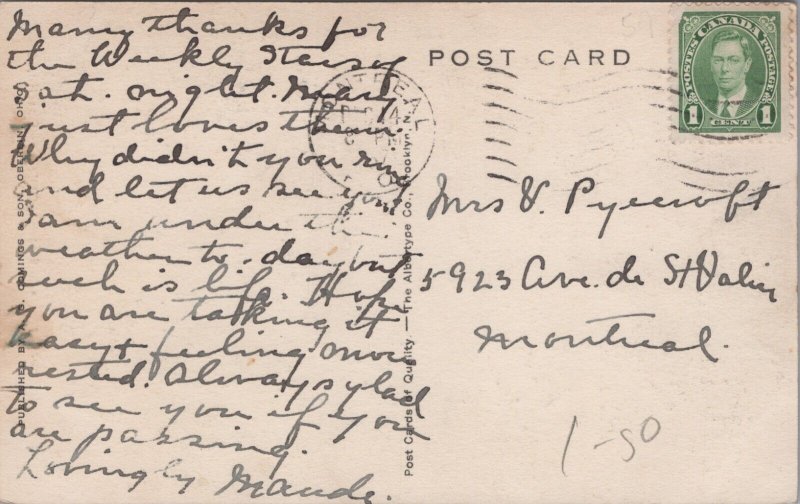 Many thanks for
the Weekly Stars of
Sat. night. Mary
just loves them.
Why didn't you ring
and let us see you.
I am under the
weather to-day but
such is life. Hope
you are taking it
easy & feeling more
rested. Always glad
to see you if you
are passing.
Lovingly Maude.
POST CARD
MONTREAL
POSTES CANADA POSTAGE
1 CENT 1
Mrs V. Pyecroft
5923 Ave. de St Valier
Montreal.
1-50
PUBLISHED BY A. G. COMINGS & SON, OBERLIN, OHIO
Post Cards of Quality. — The Albertype Co., Brooklyn, N.Y.